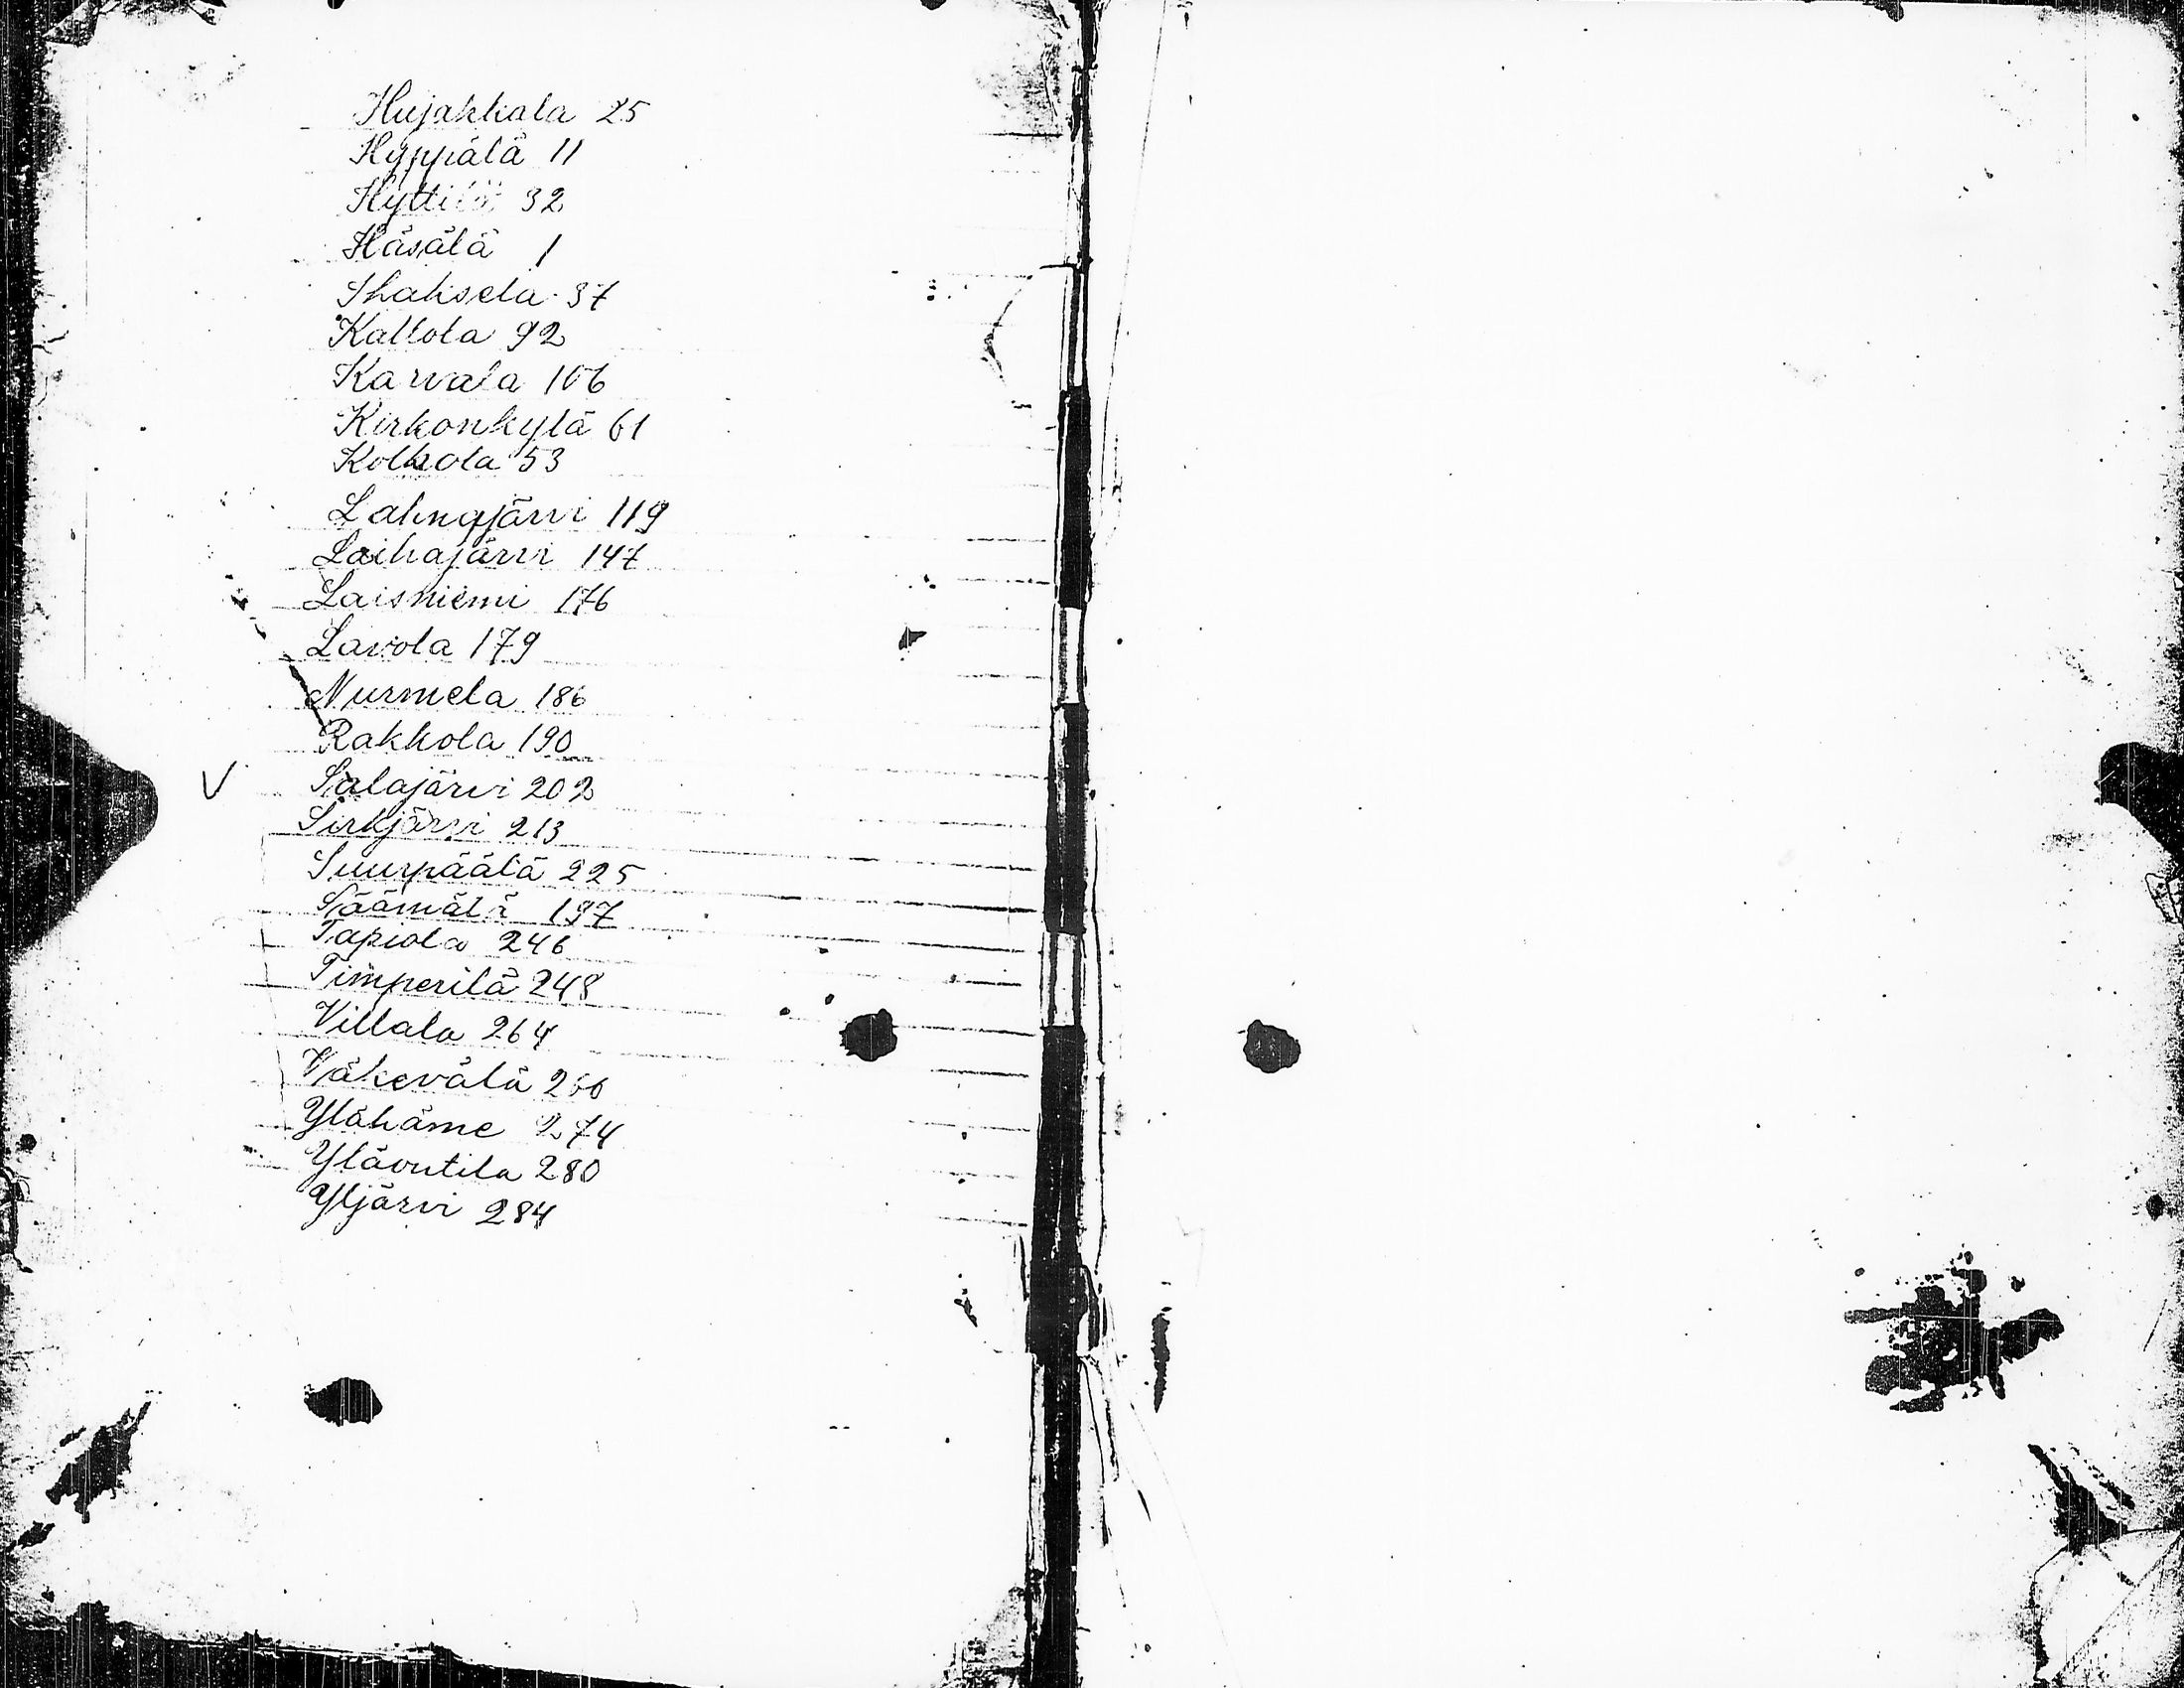 Hujakkala 25
Hyppälä 11
Hyttilä 32
Häsälä 1
Ihaksela 37
Kallola 92
Karvala 106
Kirkonkylä 61
Kolhola 53
Lahnajärvi 119
Laihajärvi 147
Laisniemi 176
Lavola 179
Nurmela 186
Rakkola 190
V Salajärvi 202
Sirkjärvi 213
Suurpäälä 225
Säämälä 197
Tapiola 246
Timperilä 248
Villala 264
Väkevälä 266
Ylähäme 274
Yläoutila 280
Yljärvi 284